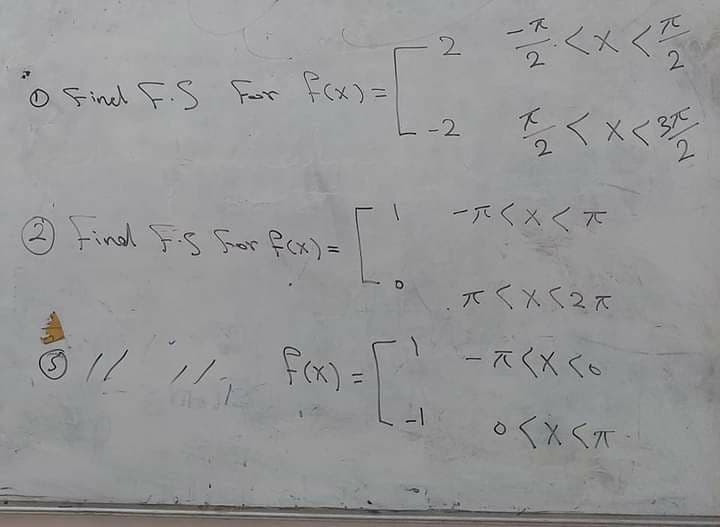 ① Find F.S For f(x) = [ 2 -π/2 < x < π/2
-2 π/2 < x < 3π/2
② Find F.S For f(x) = [ 1 -π < x < π
0 π < x < 2π
⑤ // //. f(x) = [ 1 -π < x < 0
-1 0 < x < π